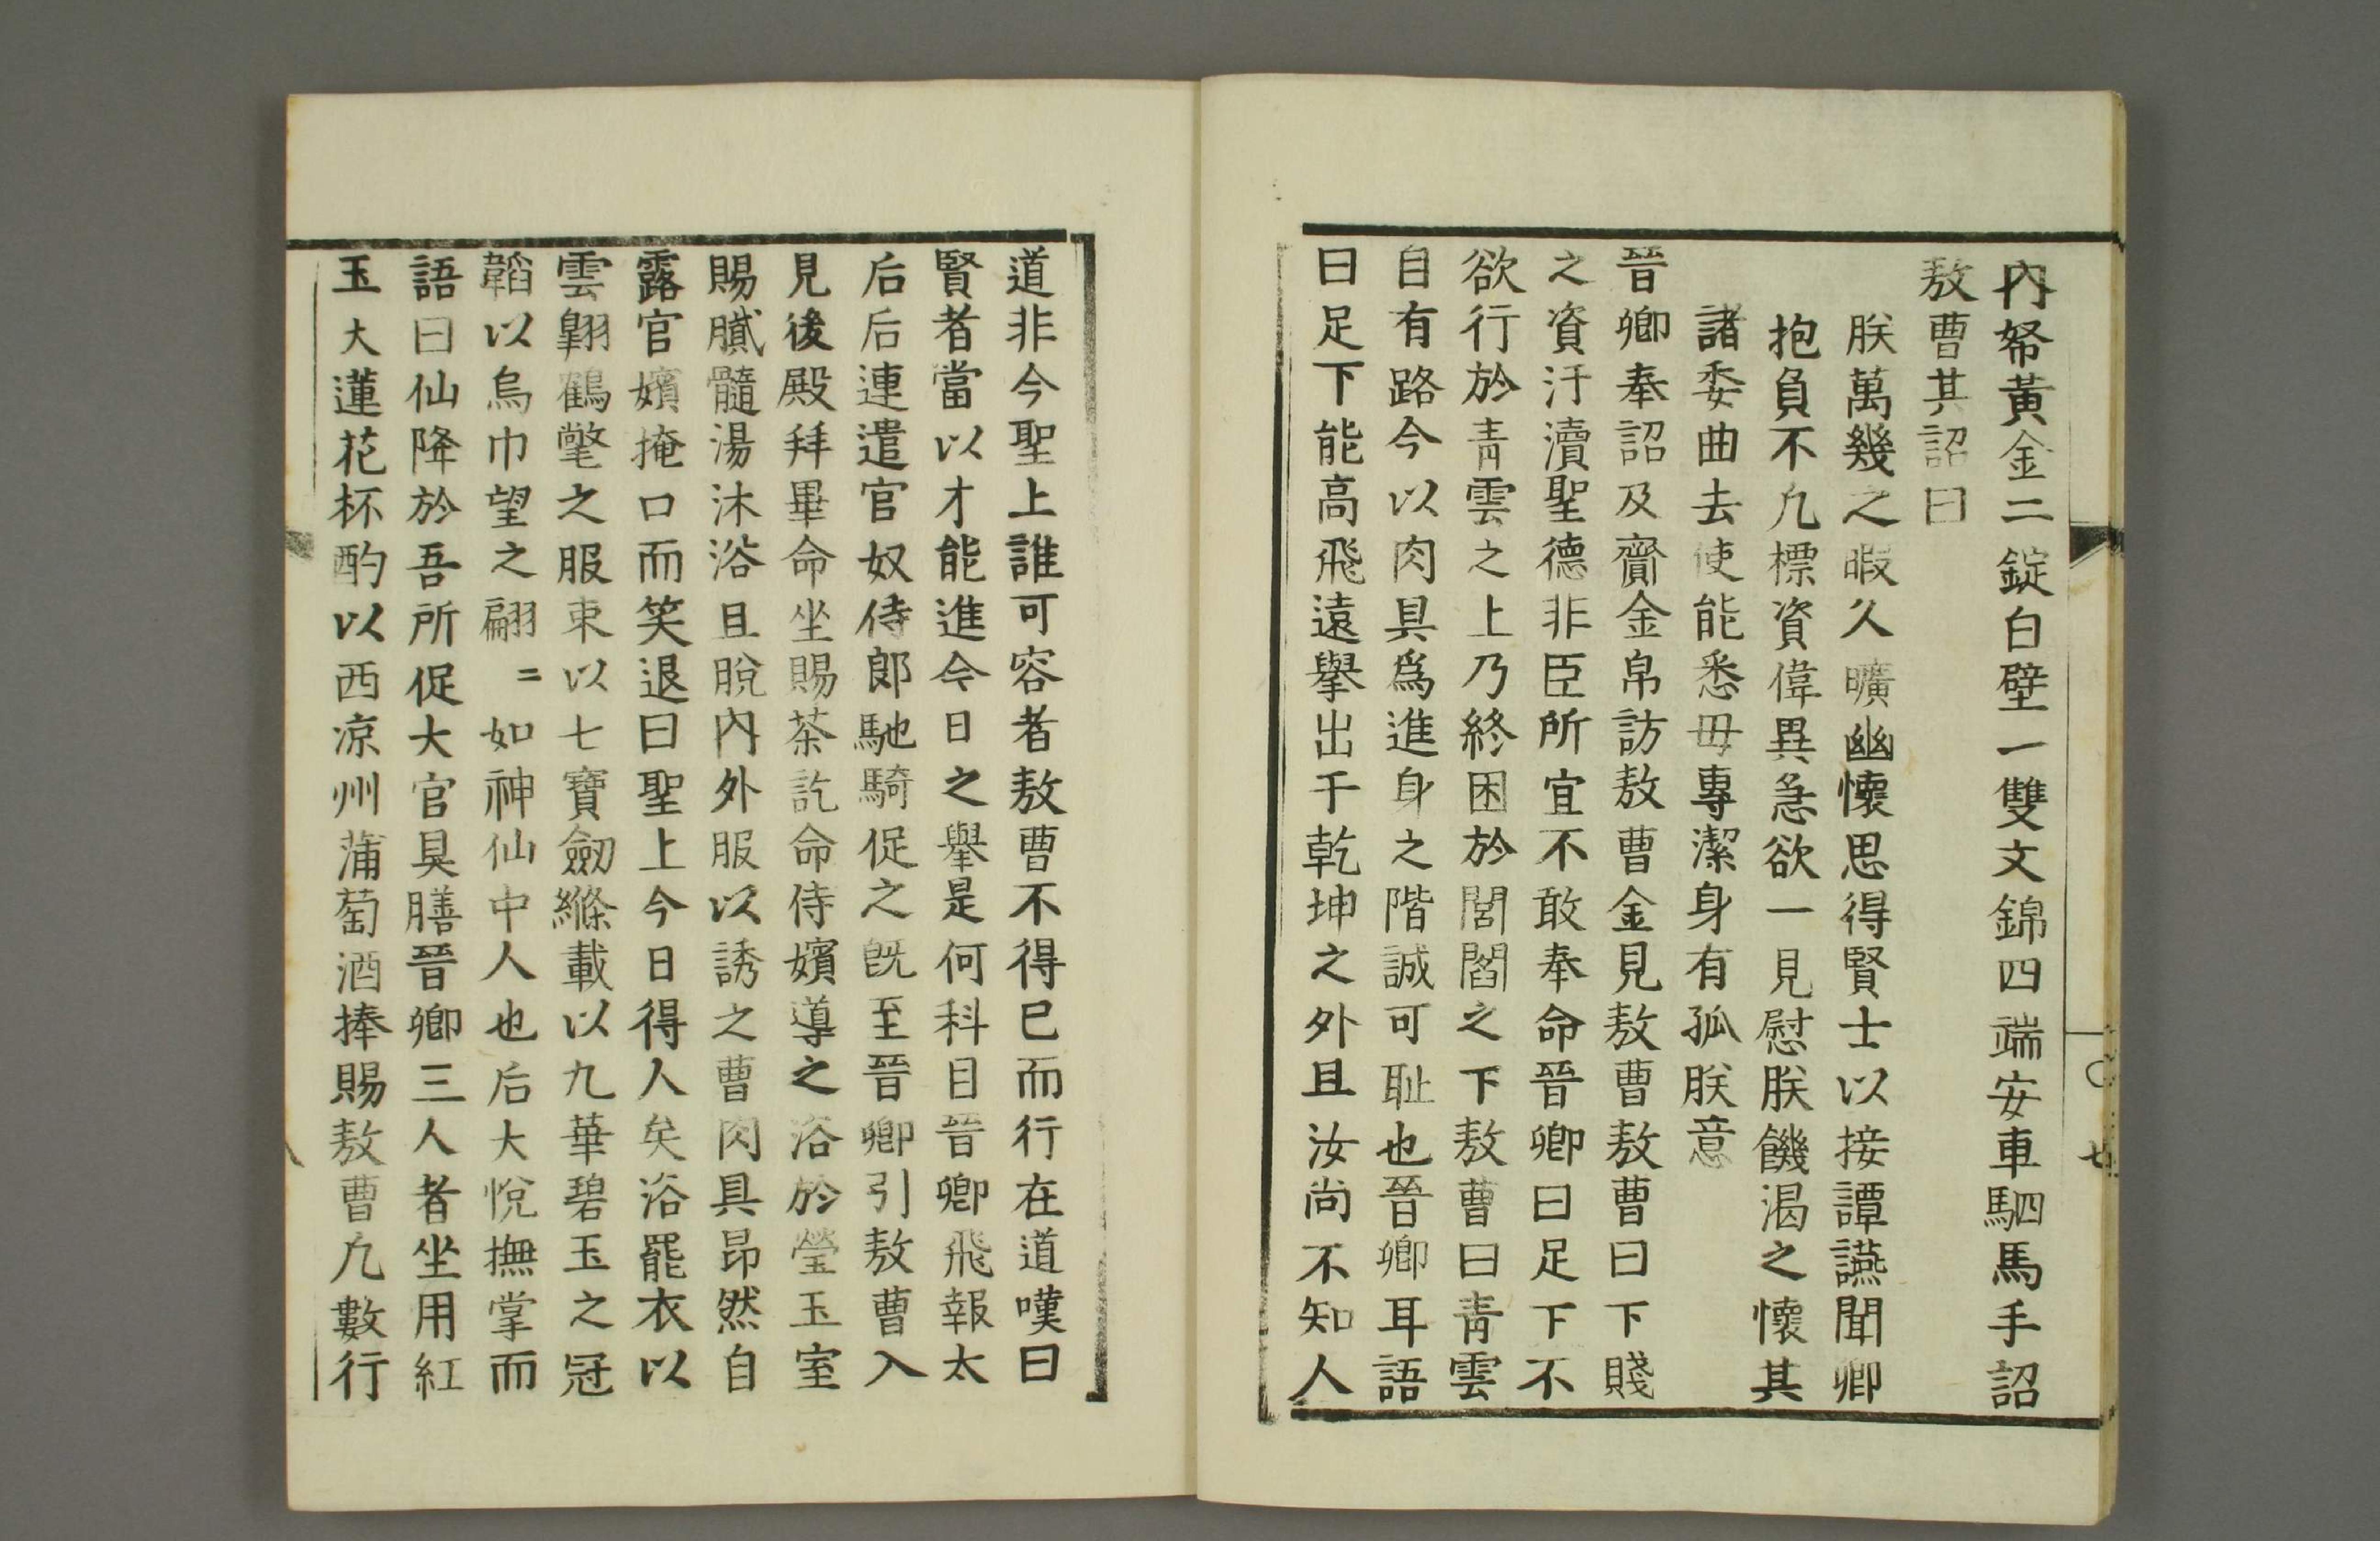 內帑黃金二錠白壁一雙文錦四端安車駟馬手詔
敖曹其詔曰
朕萬幾之暇久曠幽懷思得賢士以接譚讌聞卿
抱負不凢標資偉異急欲一見慰朕饑渴之懷其
諸委曲去使能悉毋專潔身有孤朕意
晉卿奉詔及齎金帛訪敖曹金見敖曹敖曹曰下賤
之資汙瀆聖德非臣所宜不敢奉命晉卿曰足下不
欲行於青雲之上乃終困於閭閻之下敖曹曰青雲
自有路今以肉具爲進身之階誠可耻也晉卿耳語
曰足下能高飛遠舉出于乾坤之外且汝尚不知人
道非今聖上誰可容者敖曹不得已而行在道嘆曰
賢者當以才能進今日之舉是何科目晉卿飛報太
后后連遣官奴侍郎馳騎促之旣至晉卿引敖曹入
見後殿拜畢命坐賜茶訖命侍嬪導之浴於瑩玉室
賜膩髓湯沐浴且脫內外服以誘之曹肉具昂然自
露官嬪掩口而笑退曰聖上今日得人矣浴罷衣以
雲翺鶴氅之服束以七寶劒縧載以九華碧玉之冠
韜以烏巾望之翩〻如神仙中人也后大悅撫掌而
語曰仙降於吾所促大官具膳晉卿三人者坐用紅
玉大蓮花杯酌以西凉州蒲萄酒捧賜敖曹凢數行